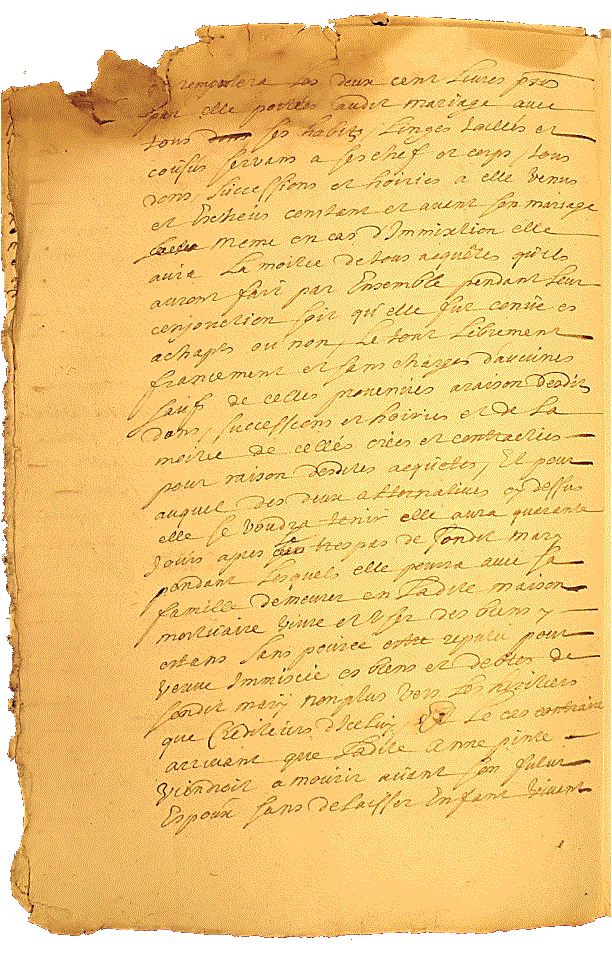 remportera les deux cent livres pres
par elle portes audit mariage avec
tous ses habits, linges taillés et
cousus servans a ses chef et corps, tous
dons, successions et hoiries a elle venus
et Escheus constant et avant son mariage
meme en cas d'Immixtion elle
aura la moitie de tous acquêtes qu'ils
auront fait par Ensemble pendant leur
conjonction soit qu'elle fut conüe es
achapts ou non, Le tout Librement
franchement et sans charges d'aucunes
sauf de celles provenües a raison desdits
dons, successions et hoiries et de La
moitie de cellés crées et contractées
pour raison desdites acquetes, Et pour
auquel des deux alternatives cy dessus
elle se voudra tenir elle aura quarante
Jours apres le trespas de sondit mary
pendant lesquels elle pourra avec sa
famille demeurer en Ladite maison
mortuaire vivre et User des biens y
estans sans pouvoir estre reputée pour
veuve Immiscée es biens et debtes de
sondit mary non plus vers les héritiers
que Créditeurs d'Iceluy Le cas contraire
arrivant que Ladite Anne pinte
viendroit a mourir avant son futur
Espoux sans delaisser Enfant vivant